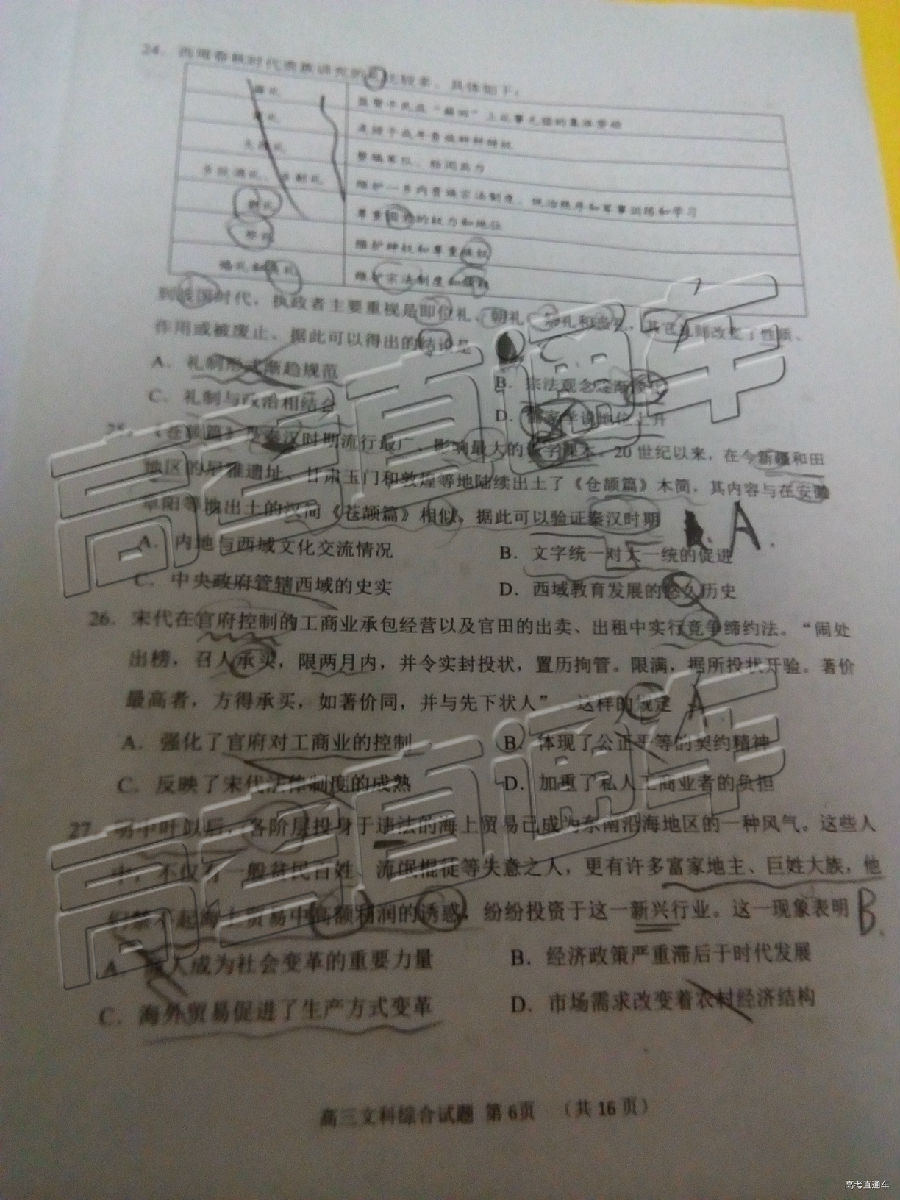 24. 西周春秋时代贵族讲究的礼较多，具体如下：
监督平民在“籍田”上从事无偿的集体劳动
整编军队、检阅兵力
维护一乡内贵族宗法制度、统治秩序和军事训练和学习
朝礼
尊重国君的权力和地位
维护神权和尊重族权
婚礼和丧礼
维护宗法制度和
到战国时代，执政者主要重视是即位礼、朝礼、礼和丧礼，其它礼则改变了性质、
作用或被废止。据此可以得出的结论是
A. 礼制形式渐趋规范
B. 宗法观念逐渐
C. 礼制与政治相结合
D. 儒家学说地位上升
25. 《苍颉篇》是秦汉时期流行最广、影响最大的识字课本。20世纪以来，在今新疆和田
地区的尼雅遗址、甘肃玉门和敦煌等地陆续出土了《仓颉篇》木简，其内容与在安徽
阜阳等地出土的汉简《苍颉篇》相似，据此可以验证秦汉时期
A.
A. 内地与西域文化交流情况
B. 文字统一对大一统的促进
C. 中央政府管辖西域的史实
D. 西域教育发展的悠久历史
26. 宋代在官府控制的工商业承包经营以及官田的出卖、出租中实行竞争缔约法。“闹处
出榜，召人承买，限两月内，并令实封投状，置历拘管。限满，据所投状开验。著价
最高者，方得承买，如著价同，并与先下状人”、这样的规定
A
A. 强化了官府对工商业的控制
B. 体现了公正平等的契约精神
C. 反映了宋代法律制度的成熟
D. 加重了私人工商业者的负担
27. 明中叶以后，各阶层投身于违法的海上贸易已成为东南沿海地区的一种风气。这些人
中，不仅有一般贫民百姓、流氓棍徒等失意之人，更有许多富家地主、巨姓大族，他
们禁不起海上贸易中高额利润的诱惑，纷纷投资于这一新兴行业。这一现象表明
B.
A. 商人成为社会变革的重要力量
B. 经济政策严重滞后于时代发展
C. 海外贸易促进了生产方式变革
D. 市场需求改变着农村经济结构
高三文科综合试题 第6页 （共16页）
高考直通车
高考直通车
高考直通车